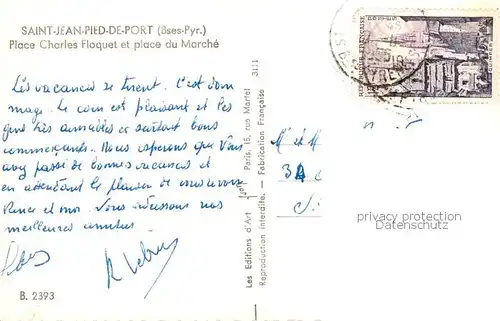 SAINT-JEAN-PIED-DE-PORT (Bses-Pyr.)
Place Charles Floquet et place du Marché
Les vacances se tirent. C'est dom
mage. Le coin est plaisant et les
gens très aimables et surtout bons
commerçants. Nous espérons que vous
avez passé de bonnes vacances et
en attendant le plaisir de vous revoir
et moi. Vous adressons nos
meilleures amitiés
B. 2393
Les Editions d'Art
Paris, 15, rue Martel 3111
Reproduction interdite. - Fabrication Française
REPUBLIQUE FRANÇAISE
POSTES
QUIMPER
M' et M
privacy protection
Datenschutz